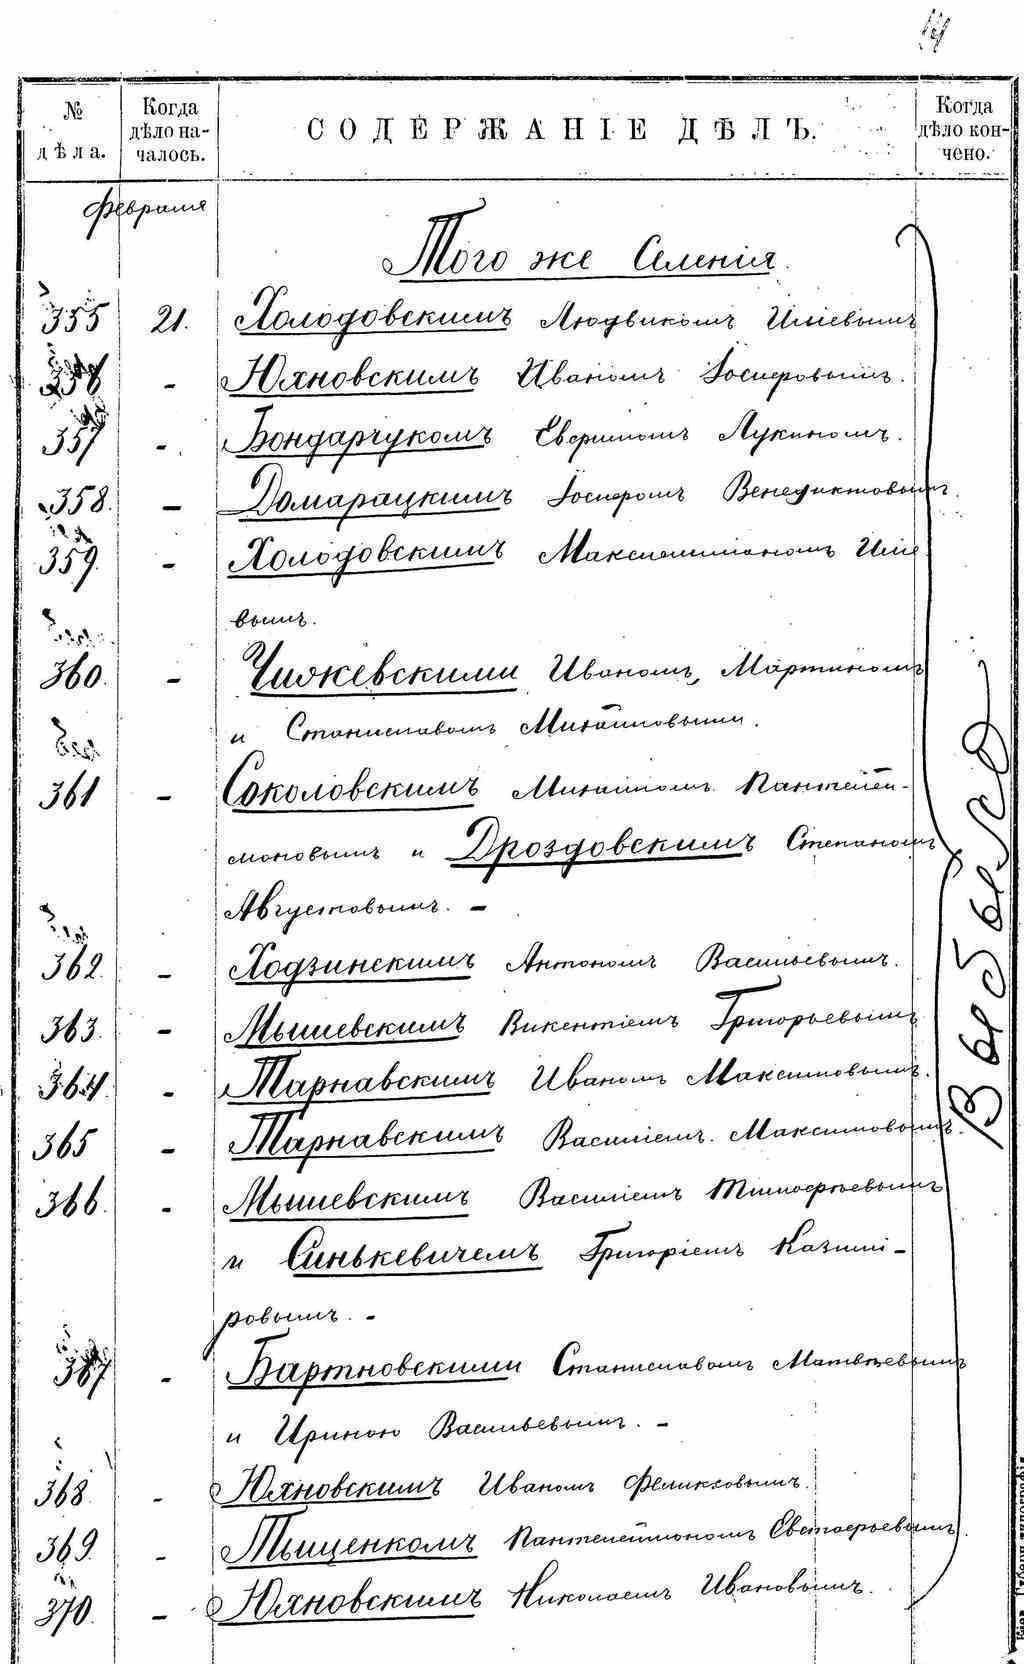 № дѣла.
Когда дѣло началось.
СОДЕРЖАНІЕ ДѢЛЪ.
Когда дѣло кончено.
Февраля
Того же Селенія.
355 21. Холодовскимъ Людвикомъ Иліевымъ
356 - Юхновскимъ Иваномъ Іосифовымъ.
357 - Бондарчукомъ Лукинымъ.
358. - Домарацкимъ Іосифомъ Венедиктовымъ.
359. - Холодовскимъ Максимиліаномъ Иліе
вымъ.
360. - Чижевскими Иваномъ, Мартиномъ
и Станиславомъ Михайловыми.
361 - Соколовскимъ Михаиломъ Пантелей-
моновымъ и Дроздовскимъ Степаномъ
Августовымъ. -
362. - Ходзинскимъ Антономъ Васильевымъ.
363. - Мышевскимъ Викентіемъ Григорьевымъ
364. - Тарнавскимъ Иваномъ Максимовымъ.
365 - Тарнавскимъ Василіемъ Максимовымъ.
366. - Мышевскимъ Василіемъ Тимофѣевымъ
и Синькевичемъ Григоріемъ Казими-
ровымъ. -
367 - Бартновскими Станиславомъ Матвѣевымъ
и Ириною Васильевымъ. -
368 - Юхновскимъ Иваномъ Феликсовымъ.
369. - Тыщенкомъ Пантелеймономъ Евстафьевымъ.
370. - Юхновскимъ Николаемъ Ивановымъ.
Выбыло